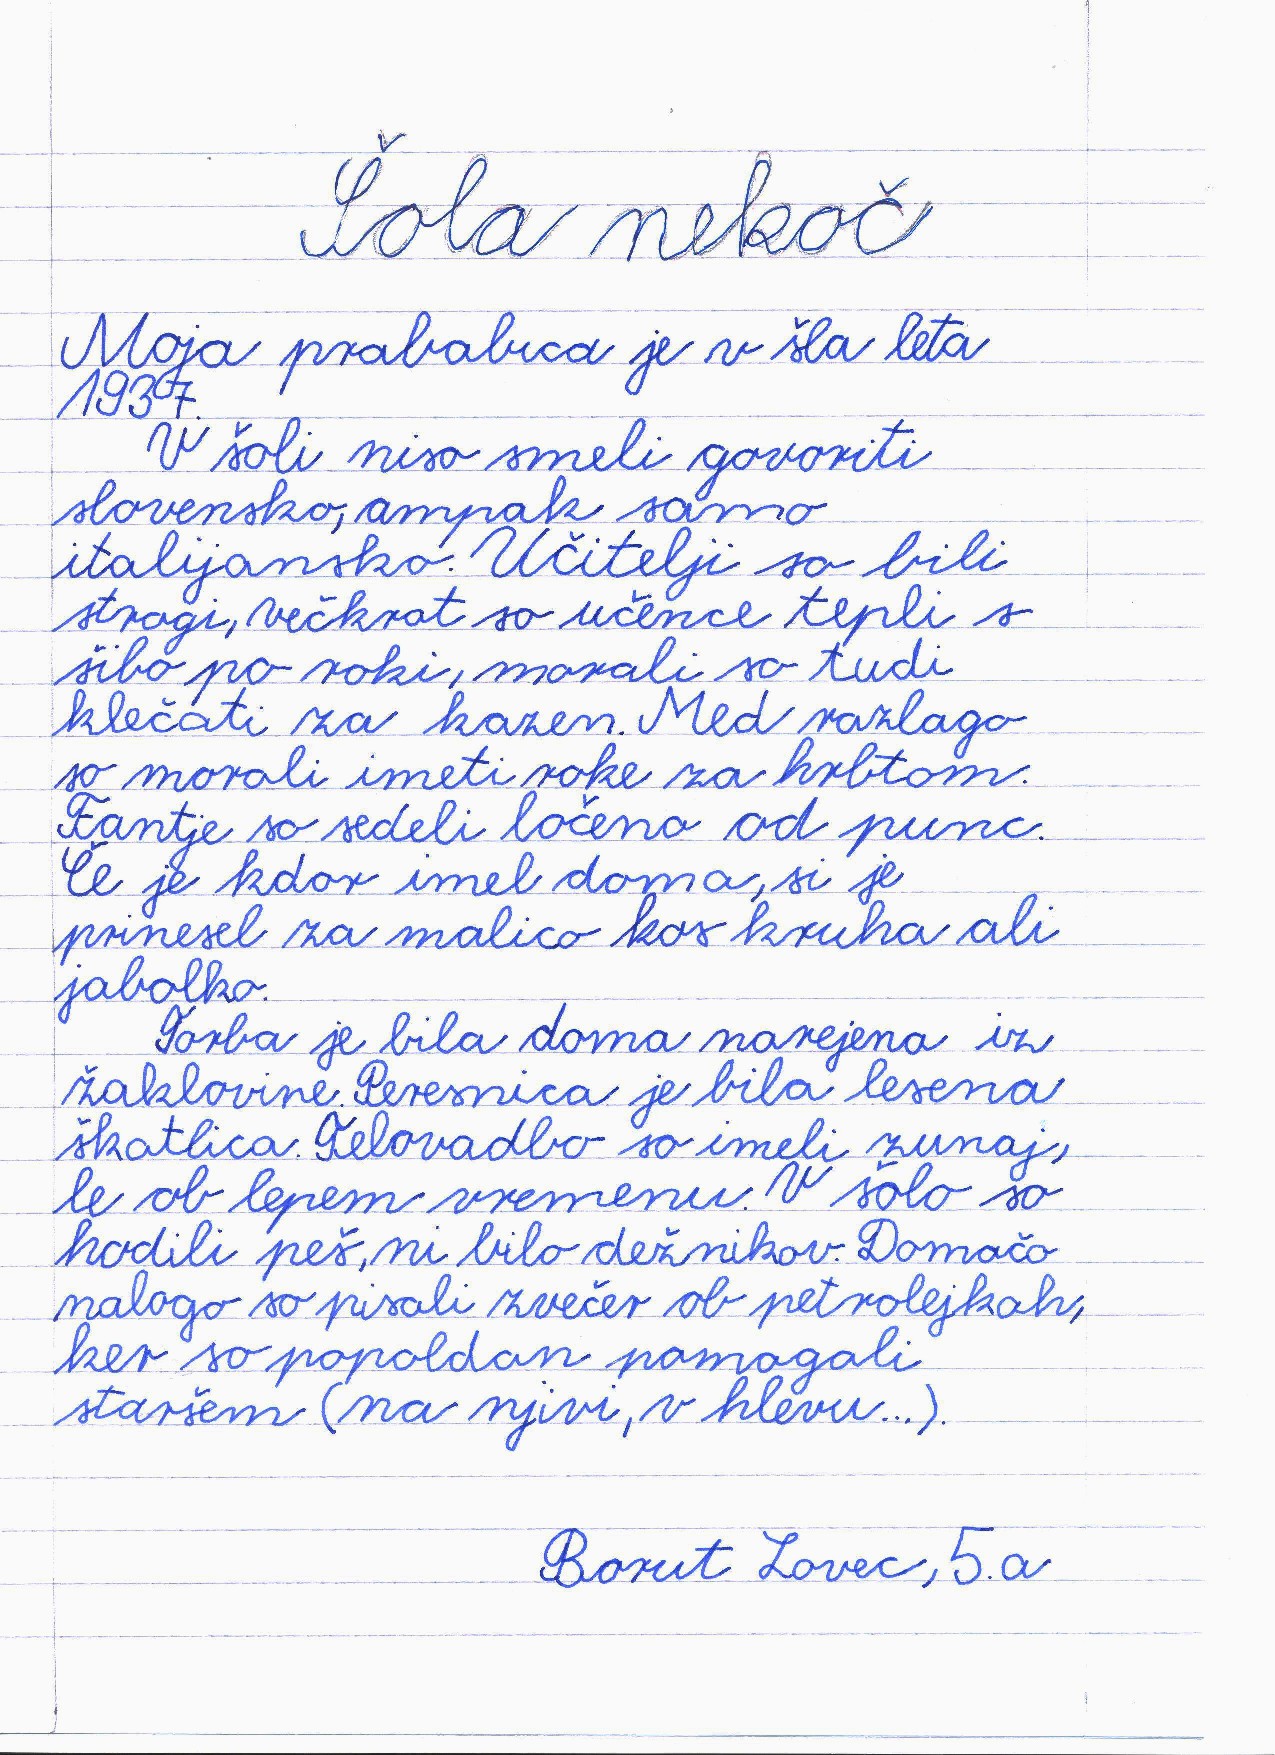 Šola nekoč
Moja prababica je v šla leta
1937.
V šoli niso smeli govoriti
slovensko, ampak samo
italijansko. Učitelji so bili
strogi, večkrat so učence tepli s
šibo po roki, morali so tudi
klečati za kazen. Med razlago
so morali imeti roke za hrbtom.
Fantje so sedeli ločeno od punc.
Če je kdor imel doma, si je
prinesel za malico kos kruha ali
jabolko.
Torba je bila doma narejena iz
žaklovine. Peresnica je bila lesena
škatlica. Telovadbo so imeli zunaj,
le ob lepem vremenu. V šolo so
hodili peš, ni bilo dežnikov. Domačo
nalogo so pisali zvečer ob petrolejkah,
ker so popoldan pomagali
staršem (na njivi, v hlevu...).
Borut Lovec, 5.a